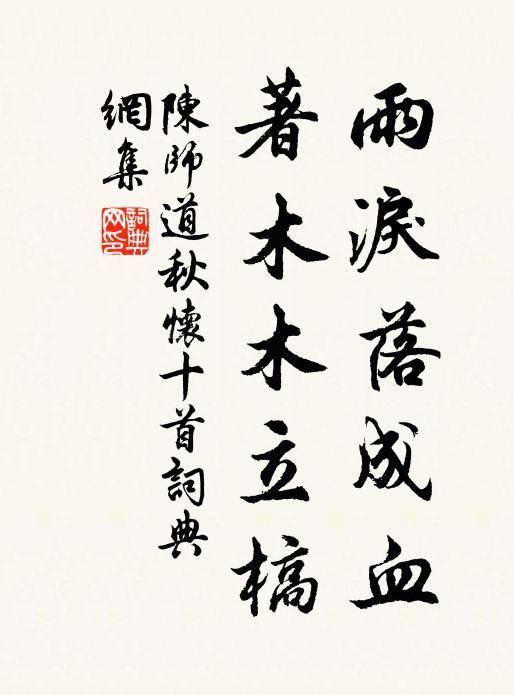 雨淚落成血
著木木立槁
陳師道秋懷十首詞典
網集
詞典
网印